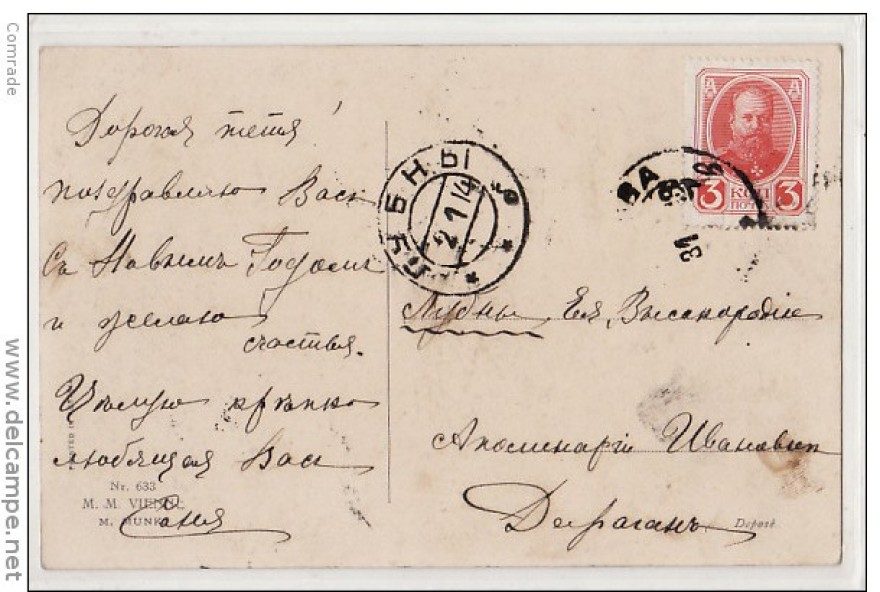 Comrade
www.delcampe.net
Дорогая тетя!
поздравляю Васъ
Съ Новымъ Годомъ
и желаю
счастья.
Цѣлую крѣпко
любящая Васъ
Соня
Nr. 633
M. M. VIENNE
M. MUNK
ЛУБНЫ
2 1 14
3 КОП 3
31
Лубны Ея Высокородіе
Аполинаріи Ивановнѣ
Дараганъ
Déposé